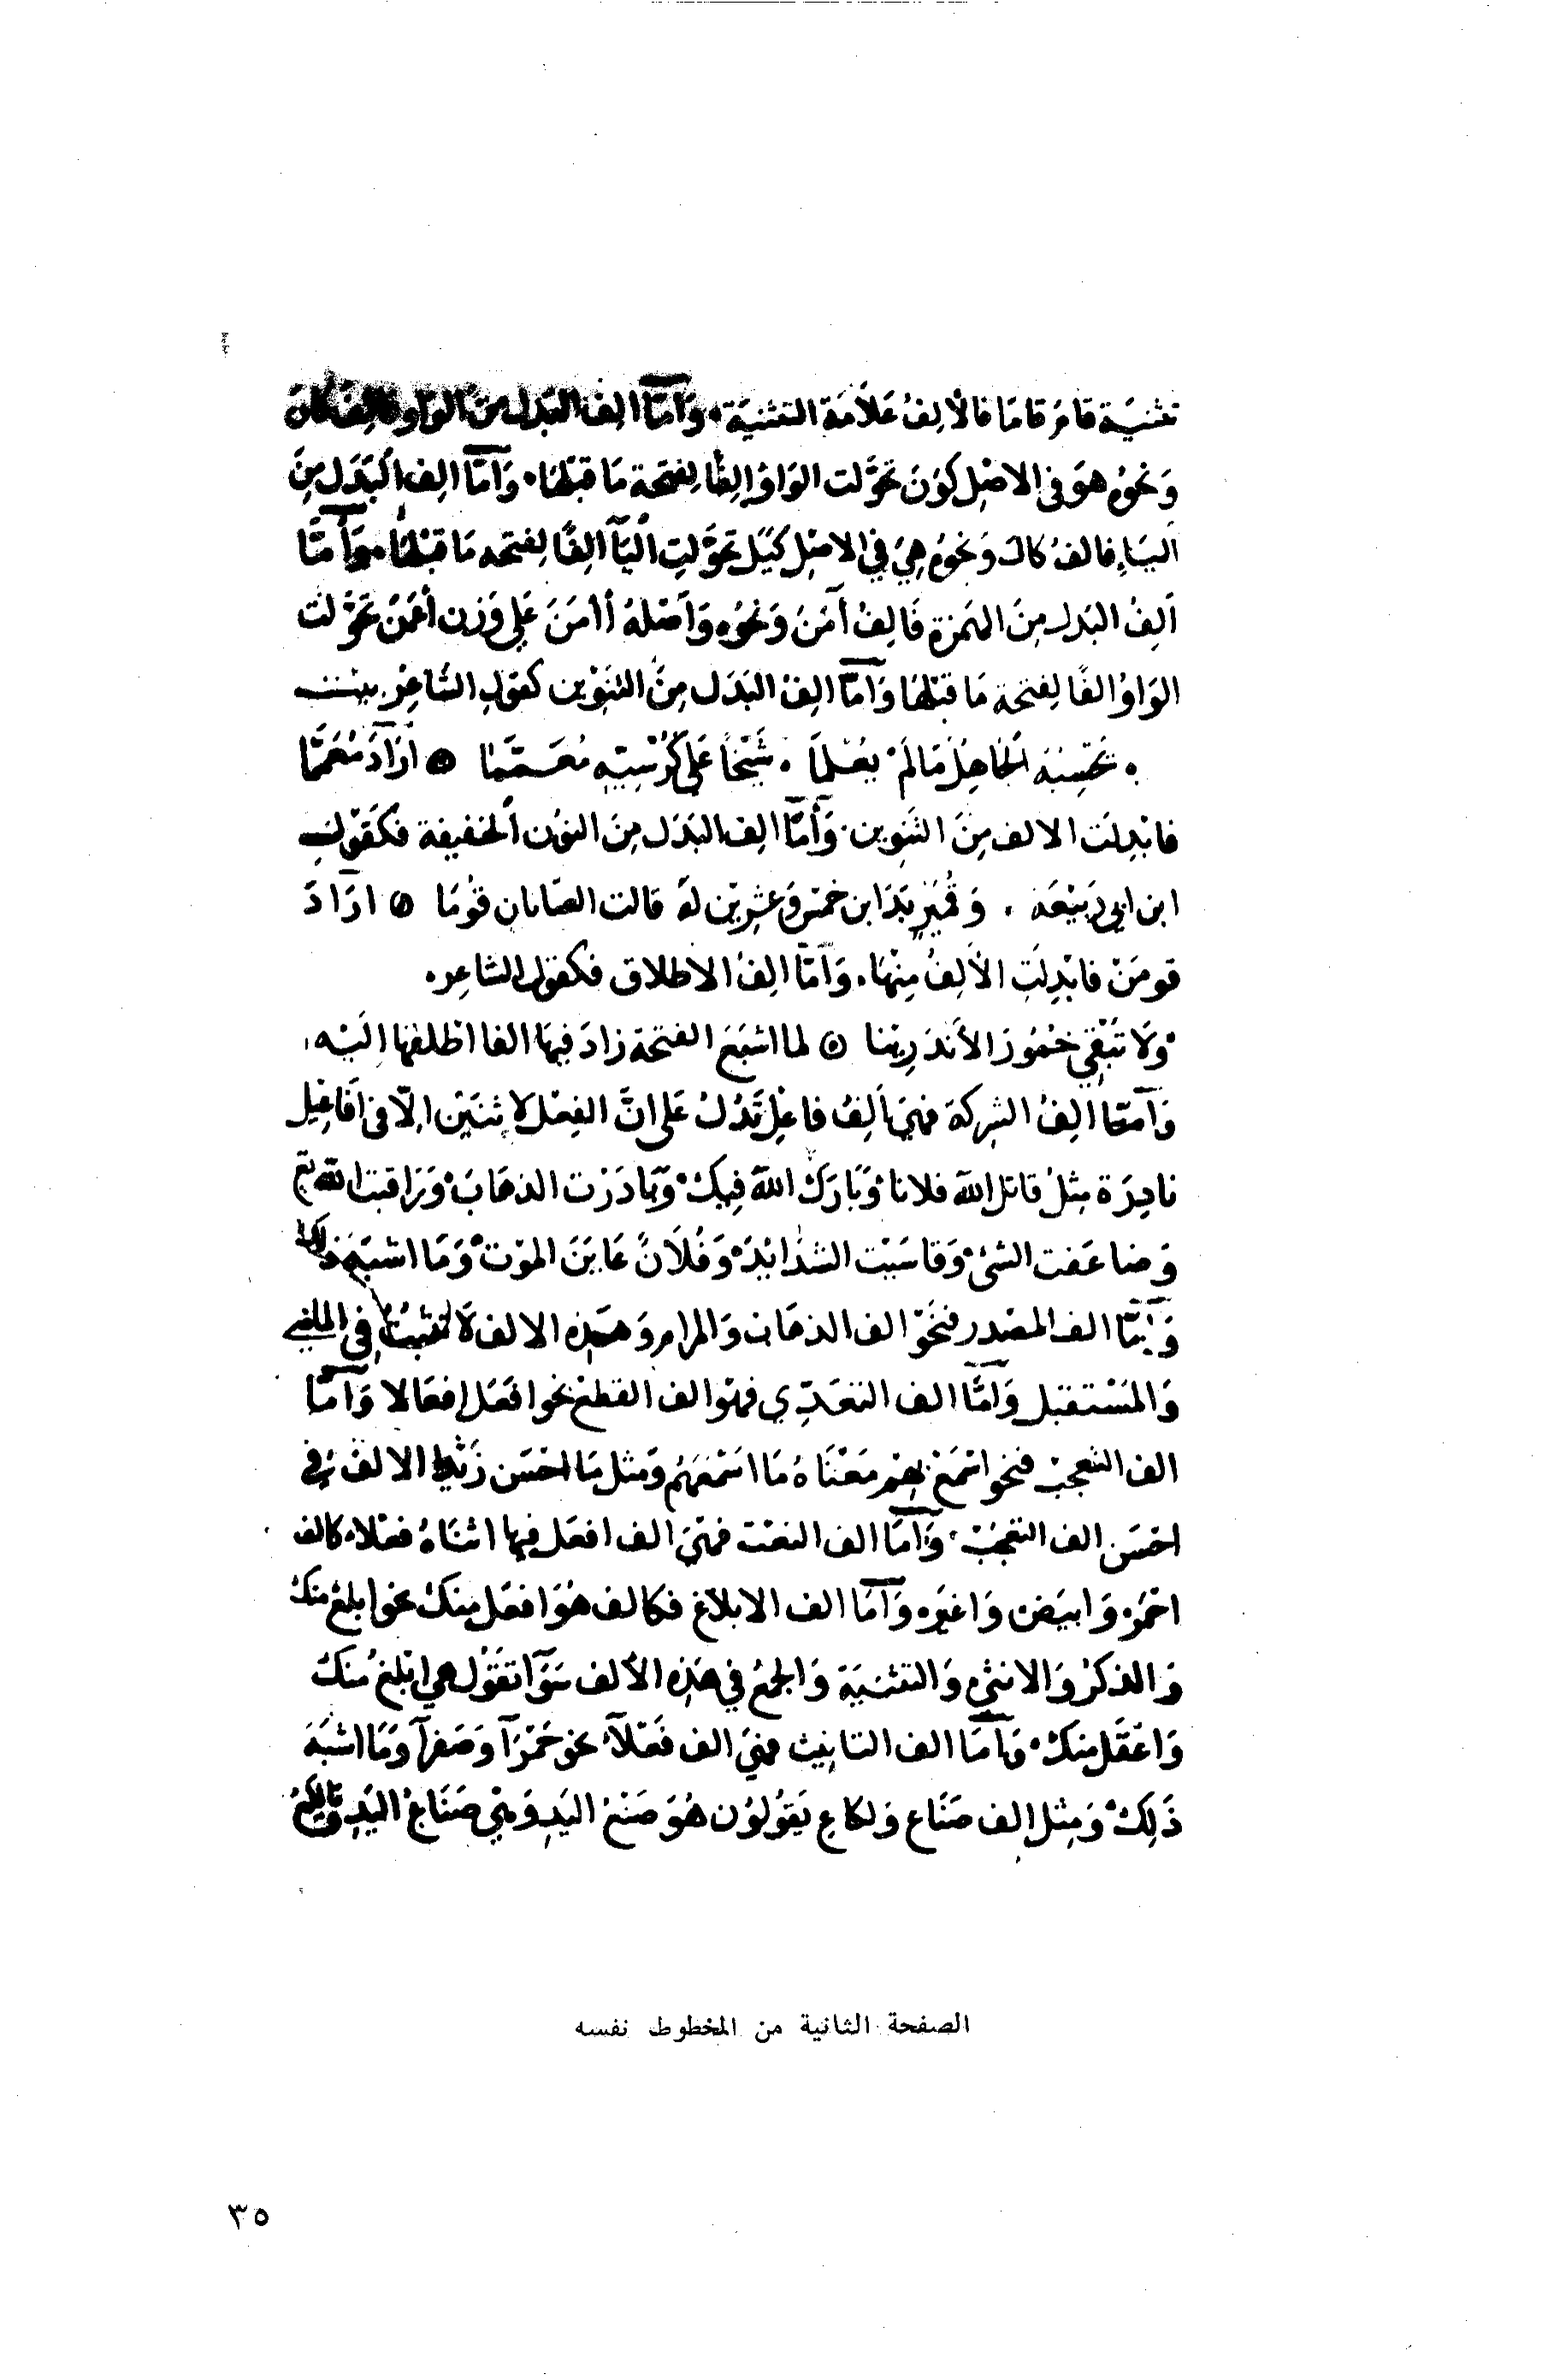 تثنية قامَ قامَا فالْالِفُ عَلَامَة التثنية وَأمَّا الِف البَدَل مِنَ الوَاو فالِف كانَ
وَنحوُه هوَ في الاصْل كوَنَ تحوَّلت الوَاوُ الِفًا لِفتحَة مَا قبْلهَا وَأمَّا الِف البَدَل مِنَ
اليَاءِ فالفُ كالَ وَنحوُه هِيَ في الاصْل كيَلَ تحوَّلتِ اليَآ الِفًا لِفتحه مَا قبْلهَا وَأمَّا
ألِفُ البَدل مِنَ الهَمزة فَالِفُ آمَنَ وَنحوُه وَاصْلهُ أأمَنَ عَلى وَزن أعْمَن تحوَّلت
الوَاوُ الفًا لِفتحة مَا قبْلهَا وَأمَّا الِفُ البَدَل مِنَ التنوِين كقولِ الشاعِر بيت
يَحْسِبُه الجَاهِلُ مَا لَمْ يعْلمَا شَيْخًا عَلى كُرْسِيّه مُعَمَّمَا ه ارَادَ مُعَمَّمًا
فابْدِلَت الالف مِنَ التنوِين وَأمَّا الِف البَدَل مِنَ النوُن الخفيفة فكقَولِ
ابن ابي رَبيْعَه وَقُمَيرٌ بَدَا ابن خمسٍ وَعِشرِين لهُ قالت الفتاتان قُومَا ه ارَادَ
قومَنْ فابْدِلَتِ الْالِفُ مِنْهَا وَأمَّا الِفُ الاطلاق فكقول الشاعِر
وَلَا تُبْقي خُمُورَ الأَندَرِينا ه لما اشبَعَ الفتحَة زادَ فيهَا الفا اطْلقهَا اليْه
وَأمّا الِفُ الشركة فهيَ ألِفُ فاعَلَ تَدُلُ عَلى انَّ الفِعْل لاثنَيْن الّا في افَاعِيل
نادِرَة مِثلُ قاتل الله فلانا وَبَارَكَ الله فِيكَ وَبَادَرْت الذهَابَ وَرَاقبت الله تع
وَضاعَفت الشئ وَقاسَيْت الشدَائِدَ وَفُلَانٌ عَايَنَ الموْت وَمَا اشبَهَ ذلك
وَأمَّا الف المصْدر فنَحْوُ الف الذهَاب وَالمرام وَهَذِه الالف لَا تثبتُ في الماضي
وَالمسْتقبل وَأمَّا الف التعَدّي فهوَ الف القطع نحو افعَل إفعَالا وَأمَّا
الف التعجب فنحو اسْمَعْ بهِم مَعْنَاهُ مَا اسْمَعَهُم وَمثل مَا احْسَن زَيْدًا الالف في
احْسَن الف التعجّب وَأمَّا الف النعْت فهيَ الف افعَل فيها انثاهُ فعْلاء كالف
احْمَر وَابيَض وَاغبَر وَأمَّا الف الابلَاغ فكالف هُوَ افعَل منكَ نحو ابلغ منك
وَالذكَرُ وَالانثى وَالتثنيَة وَالجمعُ في هَذِه الألف سَوَآ تقُول هي ابْلغ منكَ
وَاعْقَل منكَ وَأمَّا الف التانيث فهيَ الف فَعْلآ نحو حَمْرَآ وَصَفرآ وَمَا اشبَهَ
ذَلِكَ وَمِثل الف صَنَاع وَلكاعِ يَقُولوُن هُوَ صَنعُ اليَدِ وَهْيَ صَنَاعُ اليَدِ
الصفحة الثانية من المخطوط نفسه
٣٥